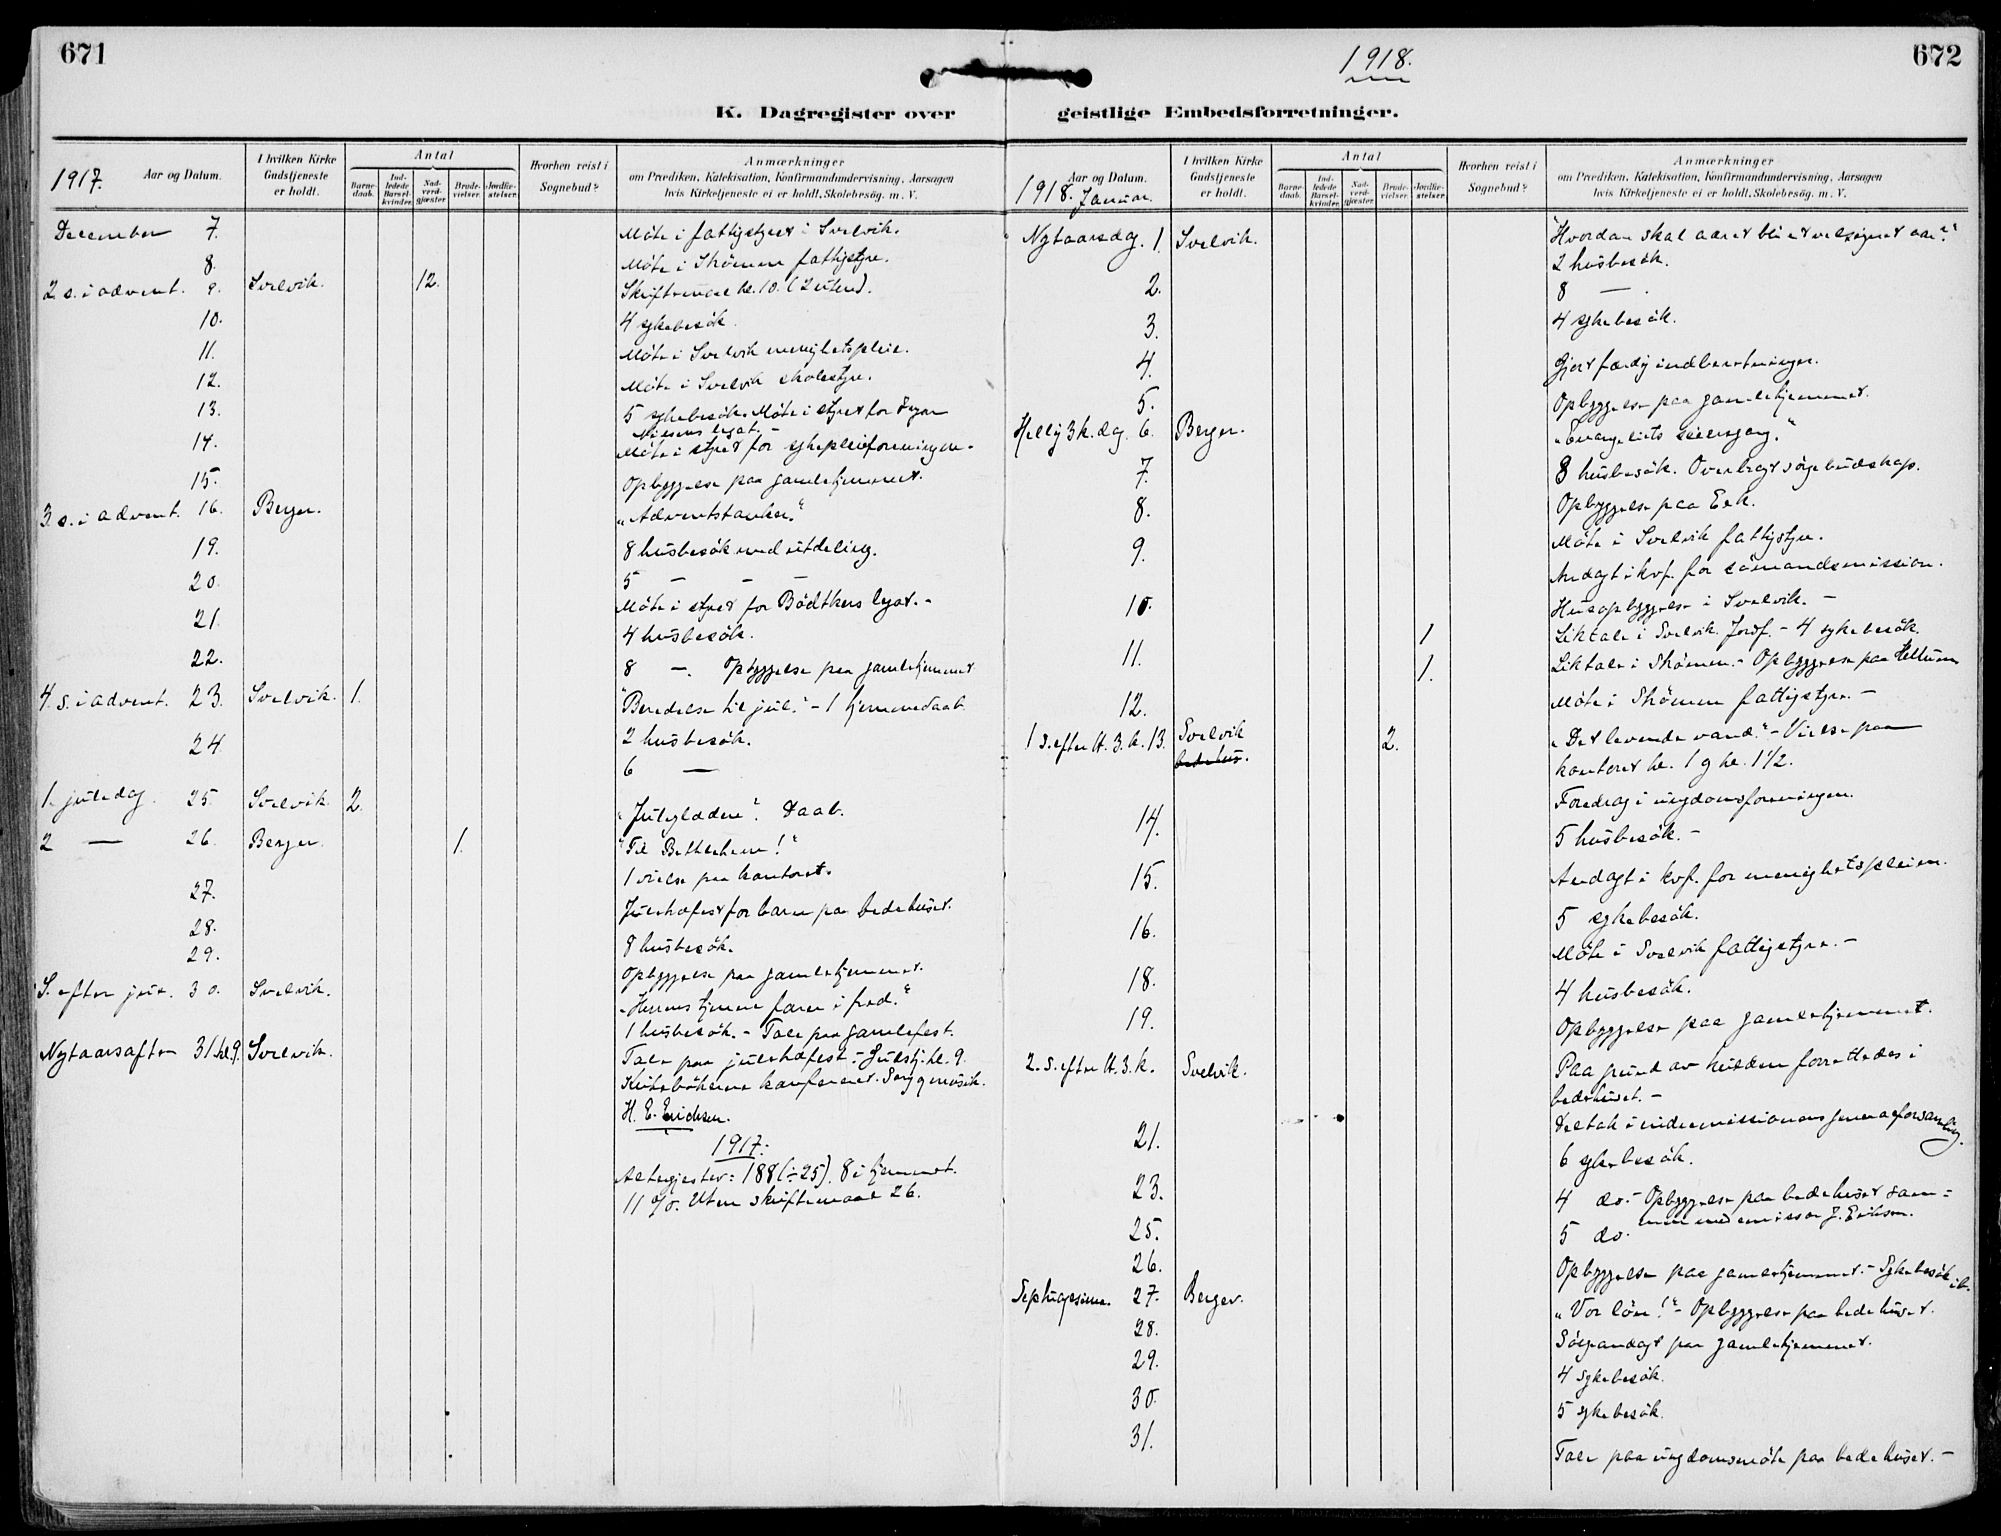 671
K. Dagregister over
1917.
Aar og Datum.
I hvilken Kirke Gudstjeneste er holdt.
Antal
Barnedaab.
Indledede Barselkvinder.
Nadverdgjæster.
Brudevielser.
Jordfæstelser.
Hvorhen reist i Sognebud?
Anmærkninger
om Prædiken, Katekisation, Konfirmandundervisning, Aarsagen
hvis Kirketjeneste ei er holdt, Skolebesøg. m. V.
December 7. Möte i fattigstyret i Svelvik.
8. Möte i Strömm fattigstyre.
2. s. i advent. 9. Svelvik. 12. Skriftemaal kl. 10. (2 uten).
10. 4 sykebesök.
11. Möte i Svelvik menighetspleie.
12. Möte i Svelvik skolestyre.
13. 5 sykebesök. Möte i styret for
Nielsens legat. -
14. Möte i styret for sykepleieforeningen. -
15. Opbyggelse paa gamlehjemmet.
3. s. i advent. 16. Berger. "Adventstanker."
19. 8 husbesök med utdeling.
20. 5 - - -
Möte i styret for Bödtkers legat. -
21. 4 husbesök.
22. 8 -. Opbyggelse paa gamlehjemmet
4. s. i advent. 23. Svelvik. 1. "Beredelse til jul." - 1 hjemmedaab.
24. 2 husbesök.
6 -
1. juledag. 25. Svelvik. 2. "Juleglæden". Daab.
2 - 26. Berger. 1. "Til Betlehem!"
1 vielse paa kontoret.
27. Juletræfest for barn paa bedehuset.
28. 8 husbesök.
29. Opbyggelse paa gamlehjemmet.
S. efter jul. 30. Svelvik. "Herrens tjener farer i fred."
1 husbesök. - Tale paa gamlefest.
Nytaarsaften 31. kl. 9. Svelvik. Tale paa juletræfest. - Gudstj. kl. 9.
Kirkebökerne konfereret.
H. E. Erichsen.
1917:
Altergjester: 188 (÷25). 8 i hjemmet.
11 %. Uten skriftemaal 26.
672
1918.
geistlige Embedsforretninger.
Aar og Datum.
1918. Januar.
I hvilken Kirke Gudstjeneste er holdt.
Antal
Barnedaab.
Indledede Barselkvinder.
Nadverdgjæster.
Brudevielser.
Jordfæstelser.
Hvorhen reist i Sognebud?
Anmærkninger
om Prædiken, Katekisation, Konfirmandundervisning, Aarsagen
hvis Kirketjeneste ei er holdt, Skolebesøg. m. V.
Nytaarsdag. 1. Svelvik. "Hvordan skal aaret bli et velsignet aar?"
2 husbesök.
2. 8 -.
3. 4 sykebesök.
4. Gjort færdig indberetninger.
5. Opbyggelse paa gamlehjemmet.
Hellig 3 k. dag. 6. Berger. "Evangeliets seiersgang."
7. 8 husbesök. Overbragt sörgebudskap.
8. Opbyggelse paa Eek.
Möte i Svelvik fattigstyre.
9. Andagt i kvf. for sömandsmission.
10. Husopbyggelse i Svelvik. -
1 Liktale i Svelvik. Jordf. - 4 sykebesök.
11. 1. Liktale i Strömm. - Opbyggelse paa Hellum
12. Möte i Strömm fattigstyre. -
1 s. efter H. 3. k. 13. Svelvik bedehus. 2. "Det levende vand." - Vielse paa
kontoret kl. 1 og kl. 1 1/2.
Foredrag i ungdomsforeningen.
14. 5 husbesök. -
15. Andagt i kvf. for menighetspleien.
5 sykebesök.
16. Möte i Svelvik fattigstyre. -
18. 4 husbesök.
19. Opbyggelse paa gamlehjemmet.
2. s. efter H. 3. k. Svelvik. Paa grund av kulden forrettedes i
bedehuset. -
Deltok i indremissionens generalforsamling.
21. 6 sykebesök.
23. 4 do. - Opbyggelse paa bedehuset sam=
men med emissær J. Eriksen.
25. 5 do.
26. Opbyggelse paa gamlehjemmet. - Sykebesök ib.
Septuagesima. 27. Berger. "Vor lön!" - Opbyggelse paa bedehuset.
28. Sörgeandagt paa gamlehjemmet.
29. 4 sykebesök.
30. 5 sykebesök.
31. Tale paa ungdomsmöte paa bedehuset. -